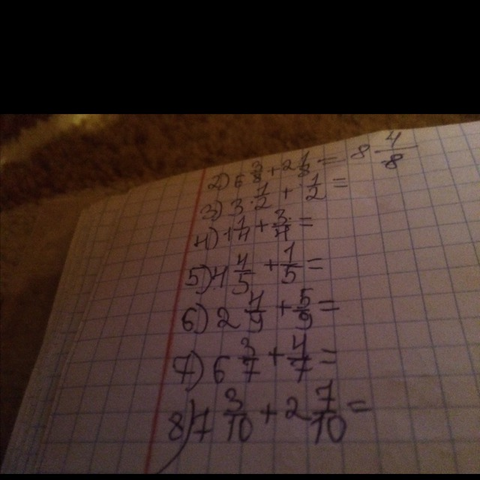 2) 6 3/8 + 2 1/8 = 8 4/8
3) 3 1/2 + 1/2 =
4) 1 1/4 + 3/4 =
5) 4 4/5 + 1/5 =
6) 2 4/9 + 5/9 =
7) 6 3/7 + 4/7 =
8) 7 3/10 + 2 7/10 =